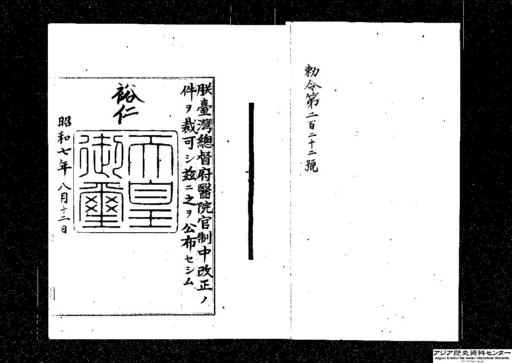 勅令第二百二十二號
朕臺灣總督府醫院官制中改正ノ
件ヲ裁可シ茲ニ之ヲ公布セシム
裕仁
天皇
御璽
昭和七年八月十二日
アジア歴史資料センター
Japan Center for Asian Historical Records